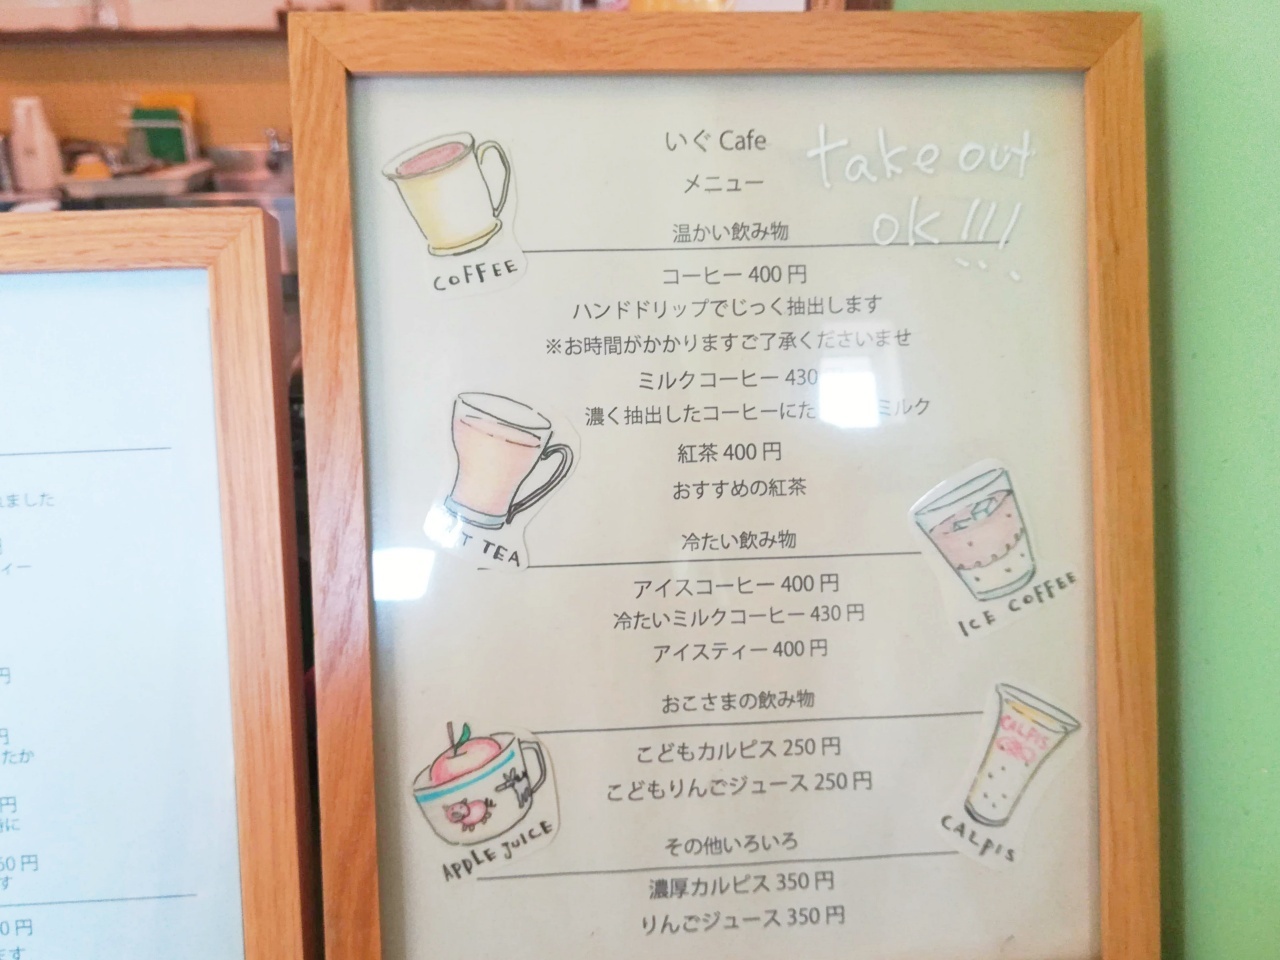 いぐ Cafe
メニュー
take out
ok!!!
温かい飲み物
COFFEE
コーヒー 400 円
ハンドドリップでじっく抽出します
※お時間がかかりますご了承くださいませ
ミルクコーヒー 430
濃く抽出したコーヒーにた ミルク
紅茶 400 円
おすすめの紅茶
T TEA
冷たい飲み物
アイスコーヒー 400 円
冷たいミルクコーヒー 430 円
アイスティー 400 円
ICE COFFEE
おこさまの飲み物
こどもカルピス 250 円
こどもりんごジュース 250 円
APPLE JUICE
CALPIS
CALPIS
その他いろいろ
濃厚カルピス 350 円
りんごジュース 350 円
ました
ィー
円
円
たか
円
に
50 円
す
0 円
ます